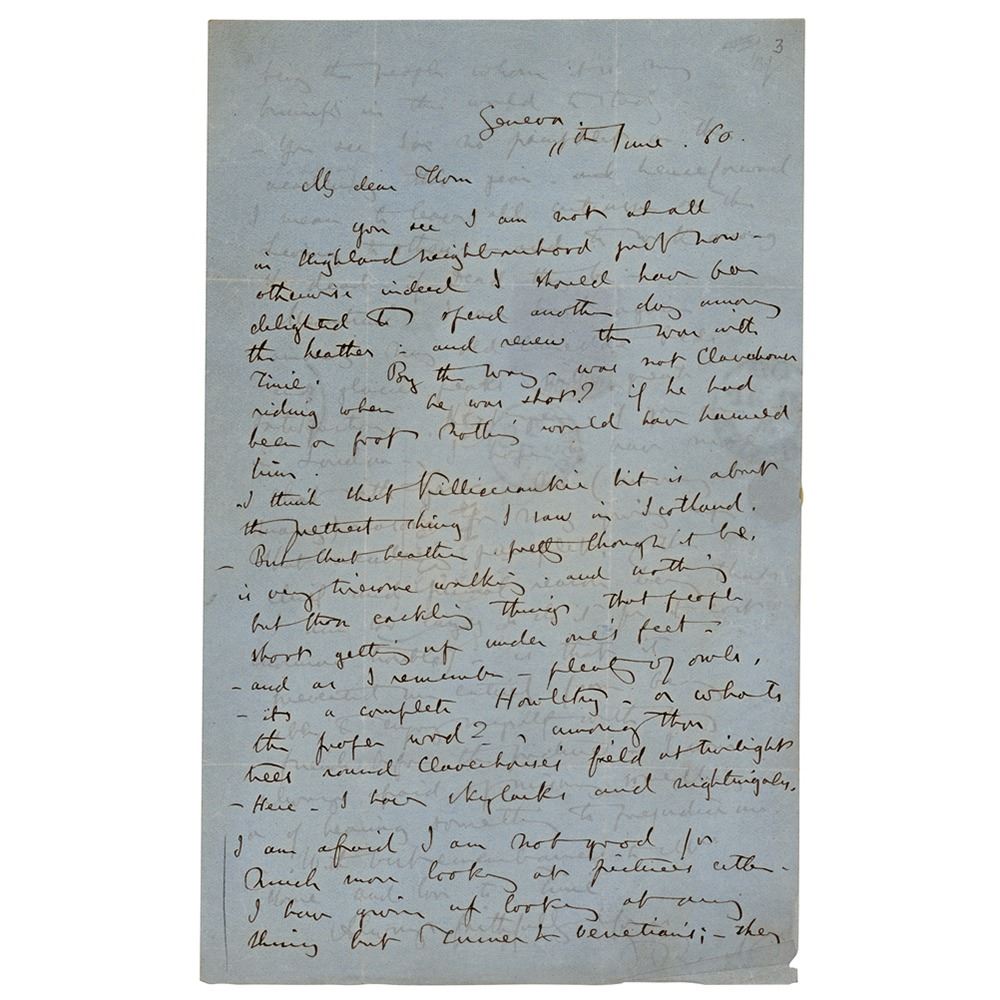 3
Geneva
11th June. 60.
My dear Thom
you see I am not at all
in Highland neighbourhood just now -
otherwise indeed I should have been
delighted to spend another day among
the heather - and renew the war with
Time. By the way - was not Claverhouse
riding when he was shot? if he had
been on foot nothing would have harmed
him.
- I think that Killiecrankie bit is about
the prettiest thing I saw in Scotland.
- But that heather pretty though it be,
is very tiresome walking - and nothing
but those cackling things that people
shoot getting up under one's feet -
- and as I remember - plenty of owls,
- its a complete Howletry - or whats
the proper word? - among those
trees round Claverhouse's field at twilight
- Here - I have skylarks and nightingales.
I am afraid I am not good for
much more looking at pictures either -
I have given up looking at any
thing but Turner & Venetians; - they